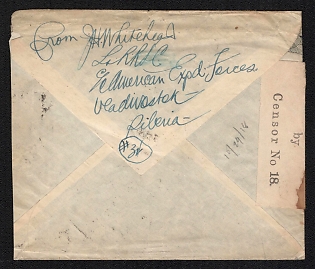 From JH Whitehead
American Exped. Forces
Vladivostok
Siberia
#34
by
Censor No 18.